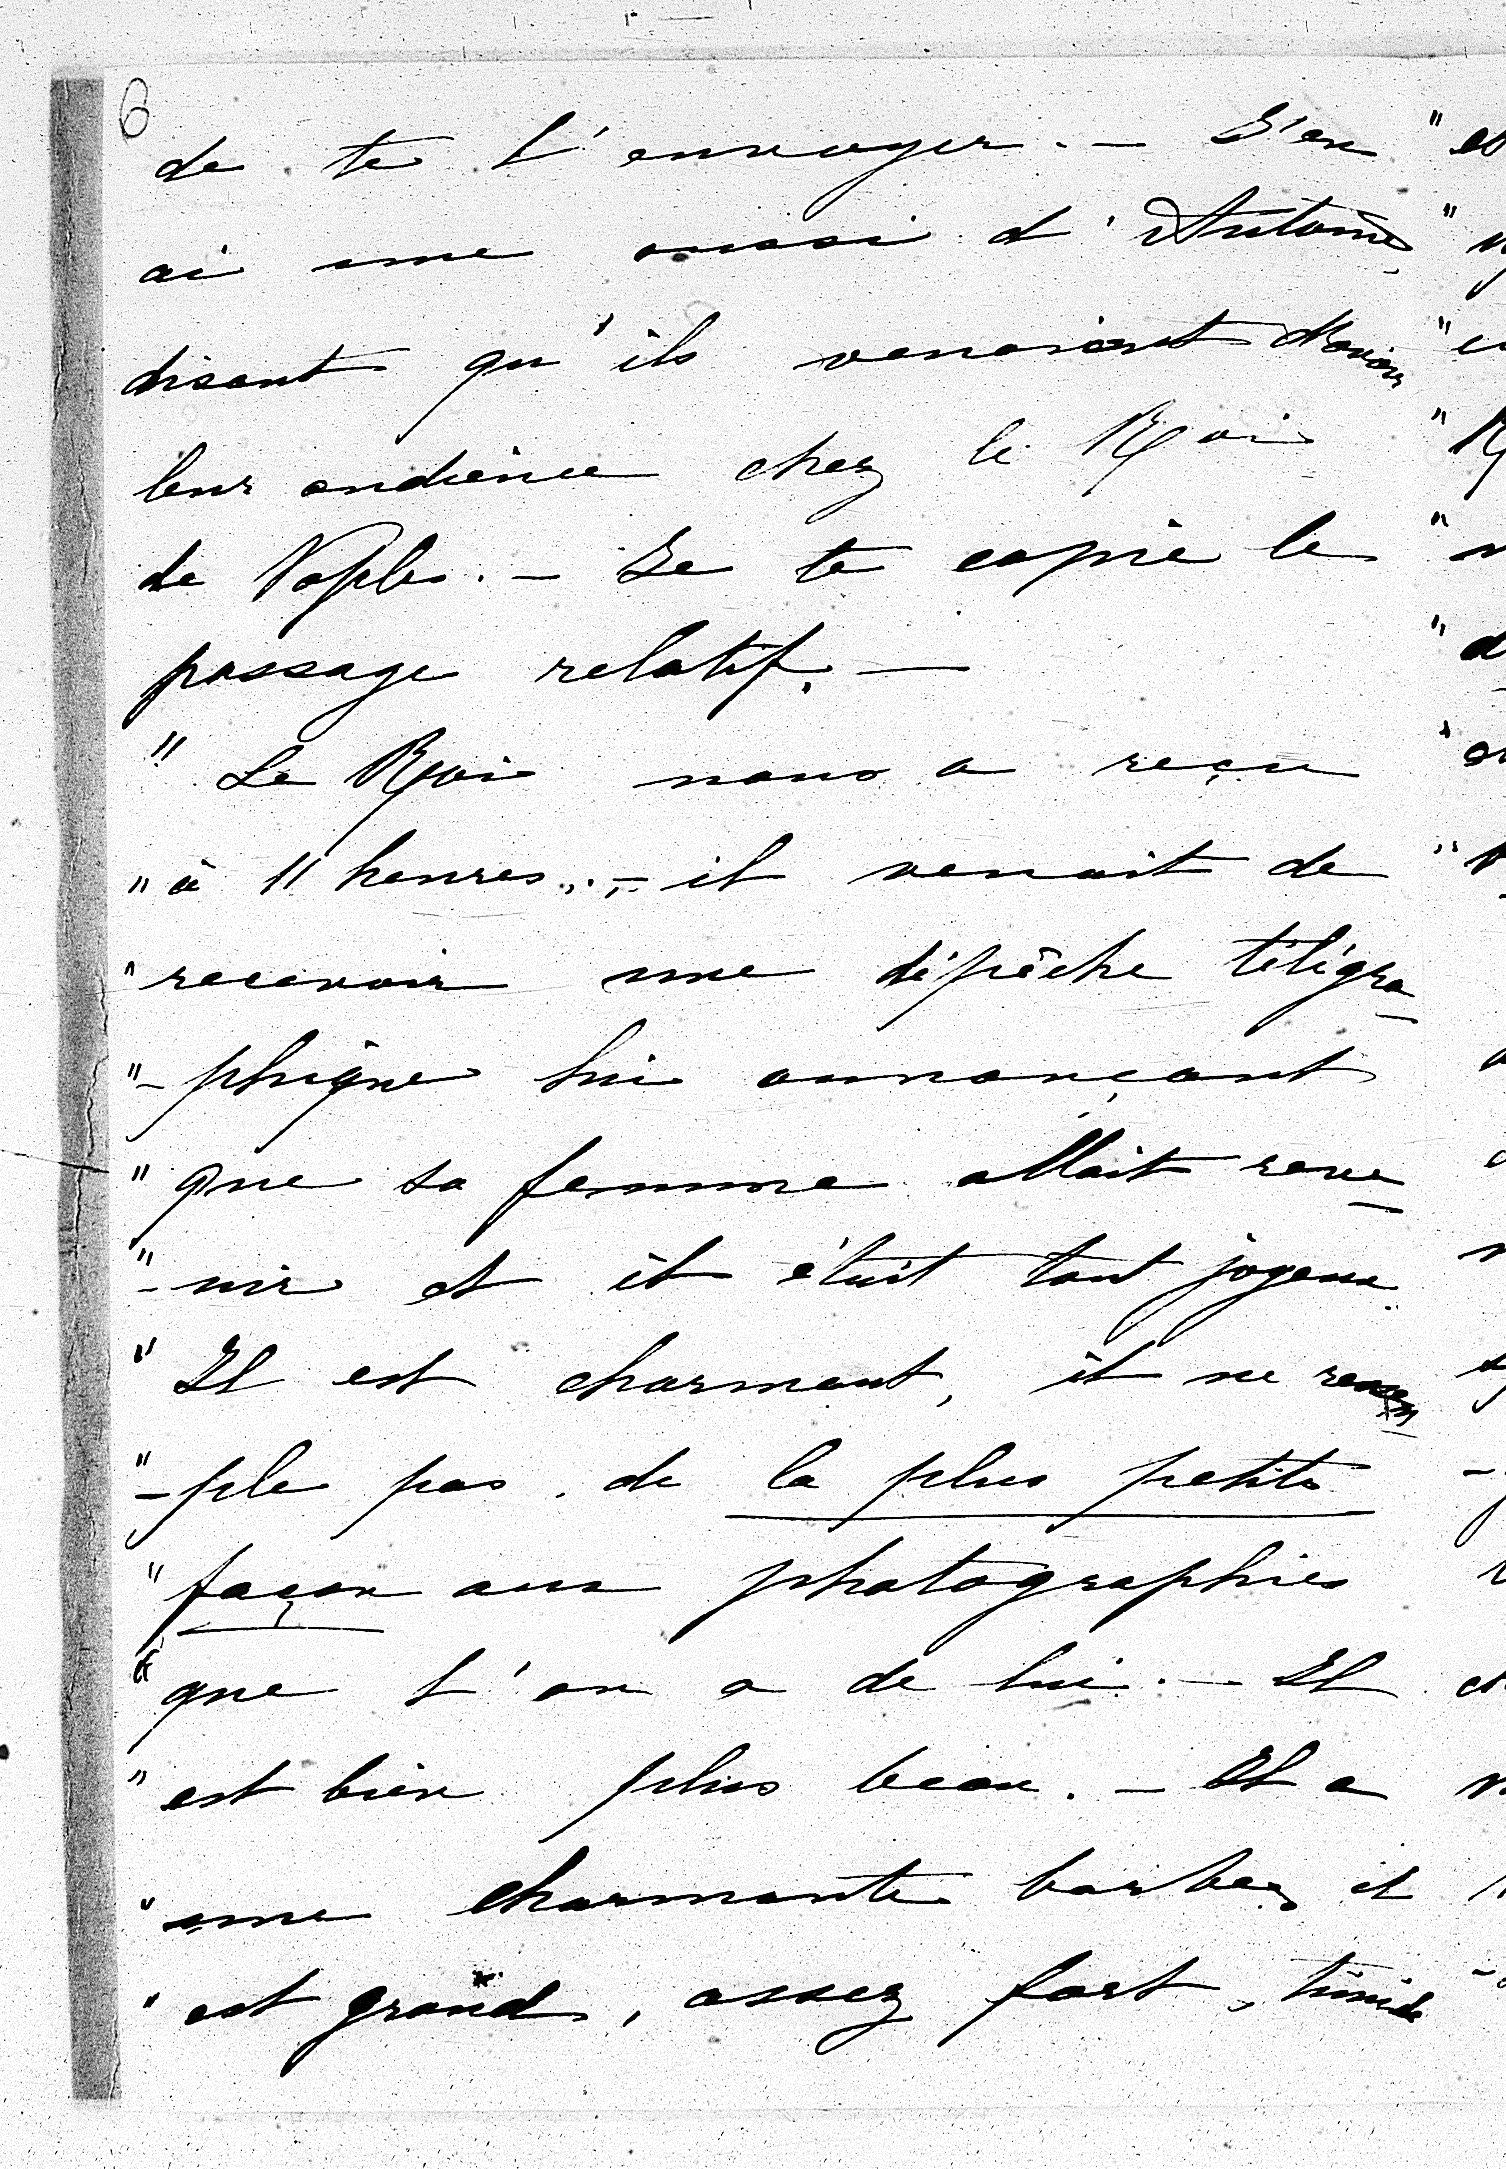 6
de te l'envoyer. — J'en
ai une aussi d'Antoine,
disant qu'ils venaient d'avoir
leur audience chez le Roi
de Naples. — Je te copie le
passage relatif. —
" Le Roi nous a reçu
" à 11 heures. — il venait de
" recevoir une dépêche télégra-
"-phique lui annonçant
" que sa femme allait reve-
"-nir et il était tout joyeux.
" Il est charmant, il ne ressem-
"-ple pas de la plus petite
" façon aux photographies
" que l'on a de lui. — Il
" est bien plus beau. — Il a
" une charmante barbe, il
" est grand, assez fort, timide